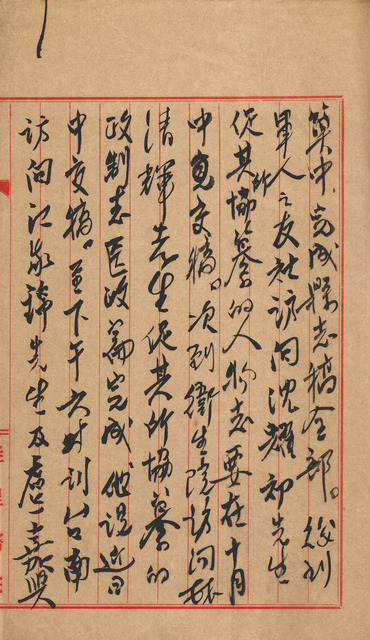 集中完成縣志稿全部。後到
軍人之友社訪問沈耀初先生
促其所協纂的人物志要在十月
中旬交稿。次到衛生院訪問林
清輝先生促其所協纂的
政制志匠政篇完成他說近日
中交稿。至下午六時到台南
訪問江家錦先生及盧嘉興